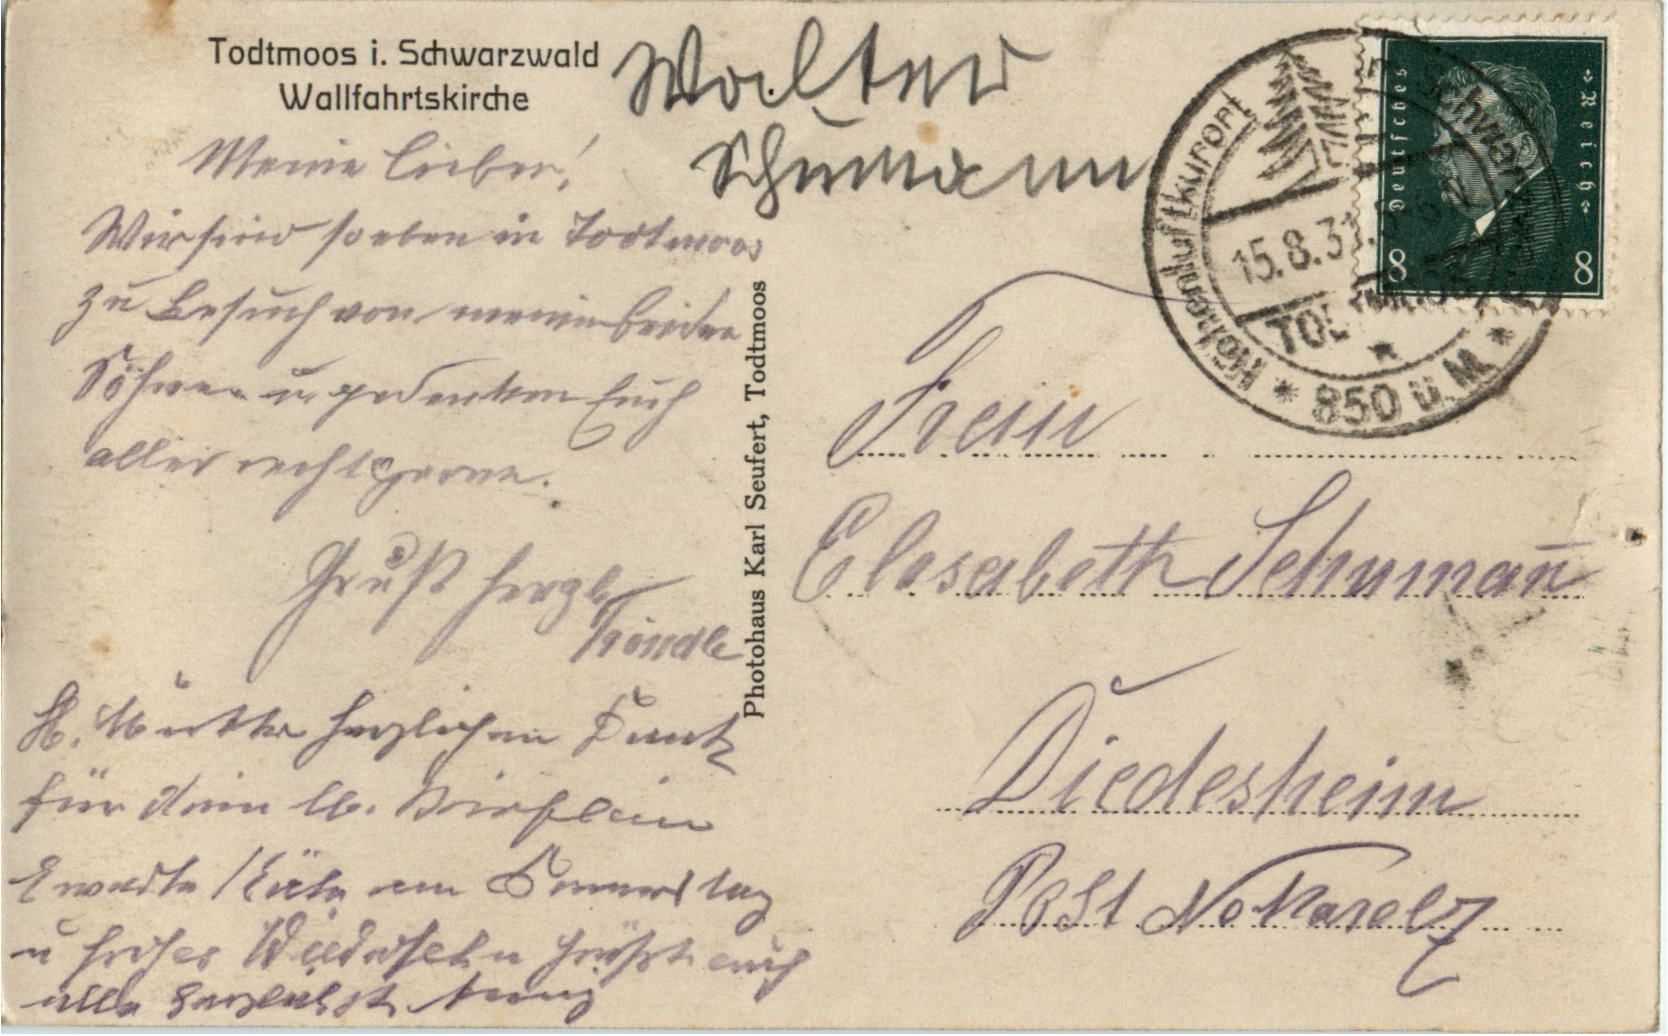 Todtmoos i. Schwarzwald
Wallfahrtskirche
Walter
Schumann
Meine Lieben!
Wir sind soeben in Todtmoos
zu Besuch von meinen beiden
Söhnen u. gedenken Euch
aller recht gerne.
Gruß herzl.
Tröndle
Mutter herzlichen Dank
für dein lb. Brieflein
Erwarte am Donnerstag
u frohes Wiedersehn grüßt euch
alle herzlichst
Photohaus Karl Seufert, Todtmoos
Höhenluftkurort
15.8.31
850 ü. M.
Deutsches Reich
8 8
Frau
Elisabeth Schumann
Diedesheim
Post Nekarelz